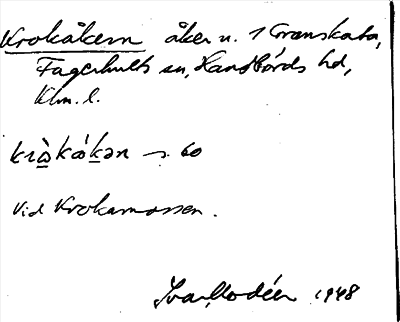 Krokåkern åker u. 1 Granskata,
Fagerhults sn, Handbörds hd,
Klm. l.
krὼkåkən → 60
Vid Krokamossen.
Ivar Modéer 1948